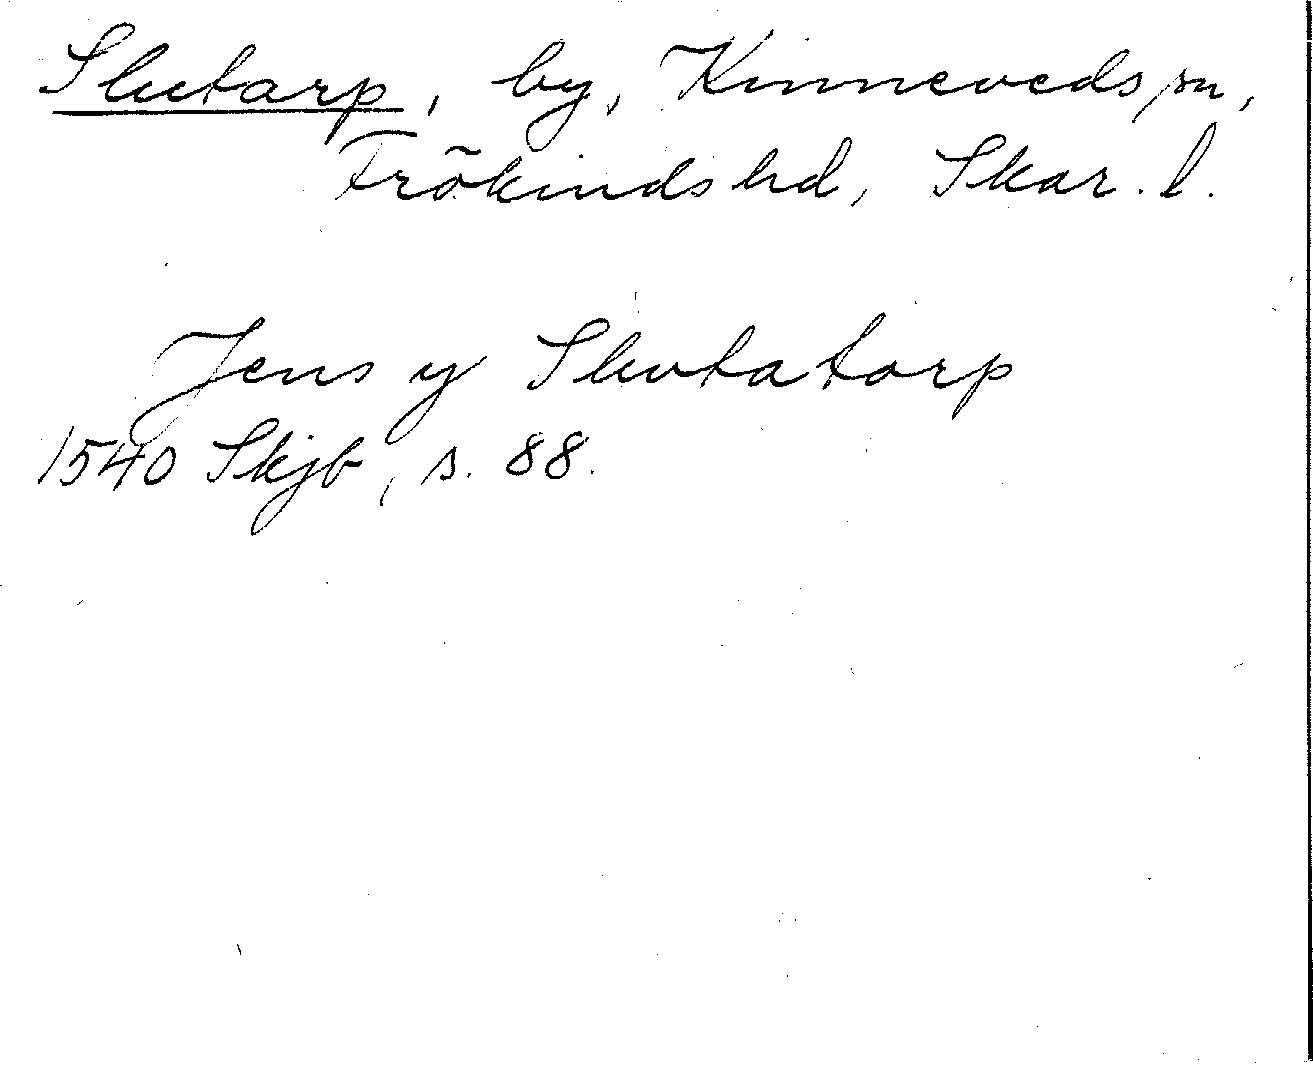 Slutarp, by, Kinneveds sn,
Frökinds hd, Skar. l.
Jens y Slutatorp
1540 Skjb, s. 88.